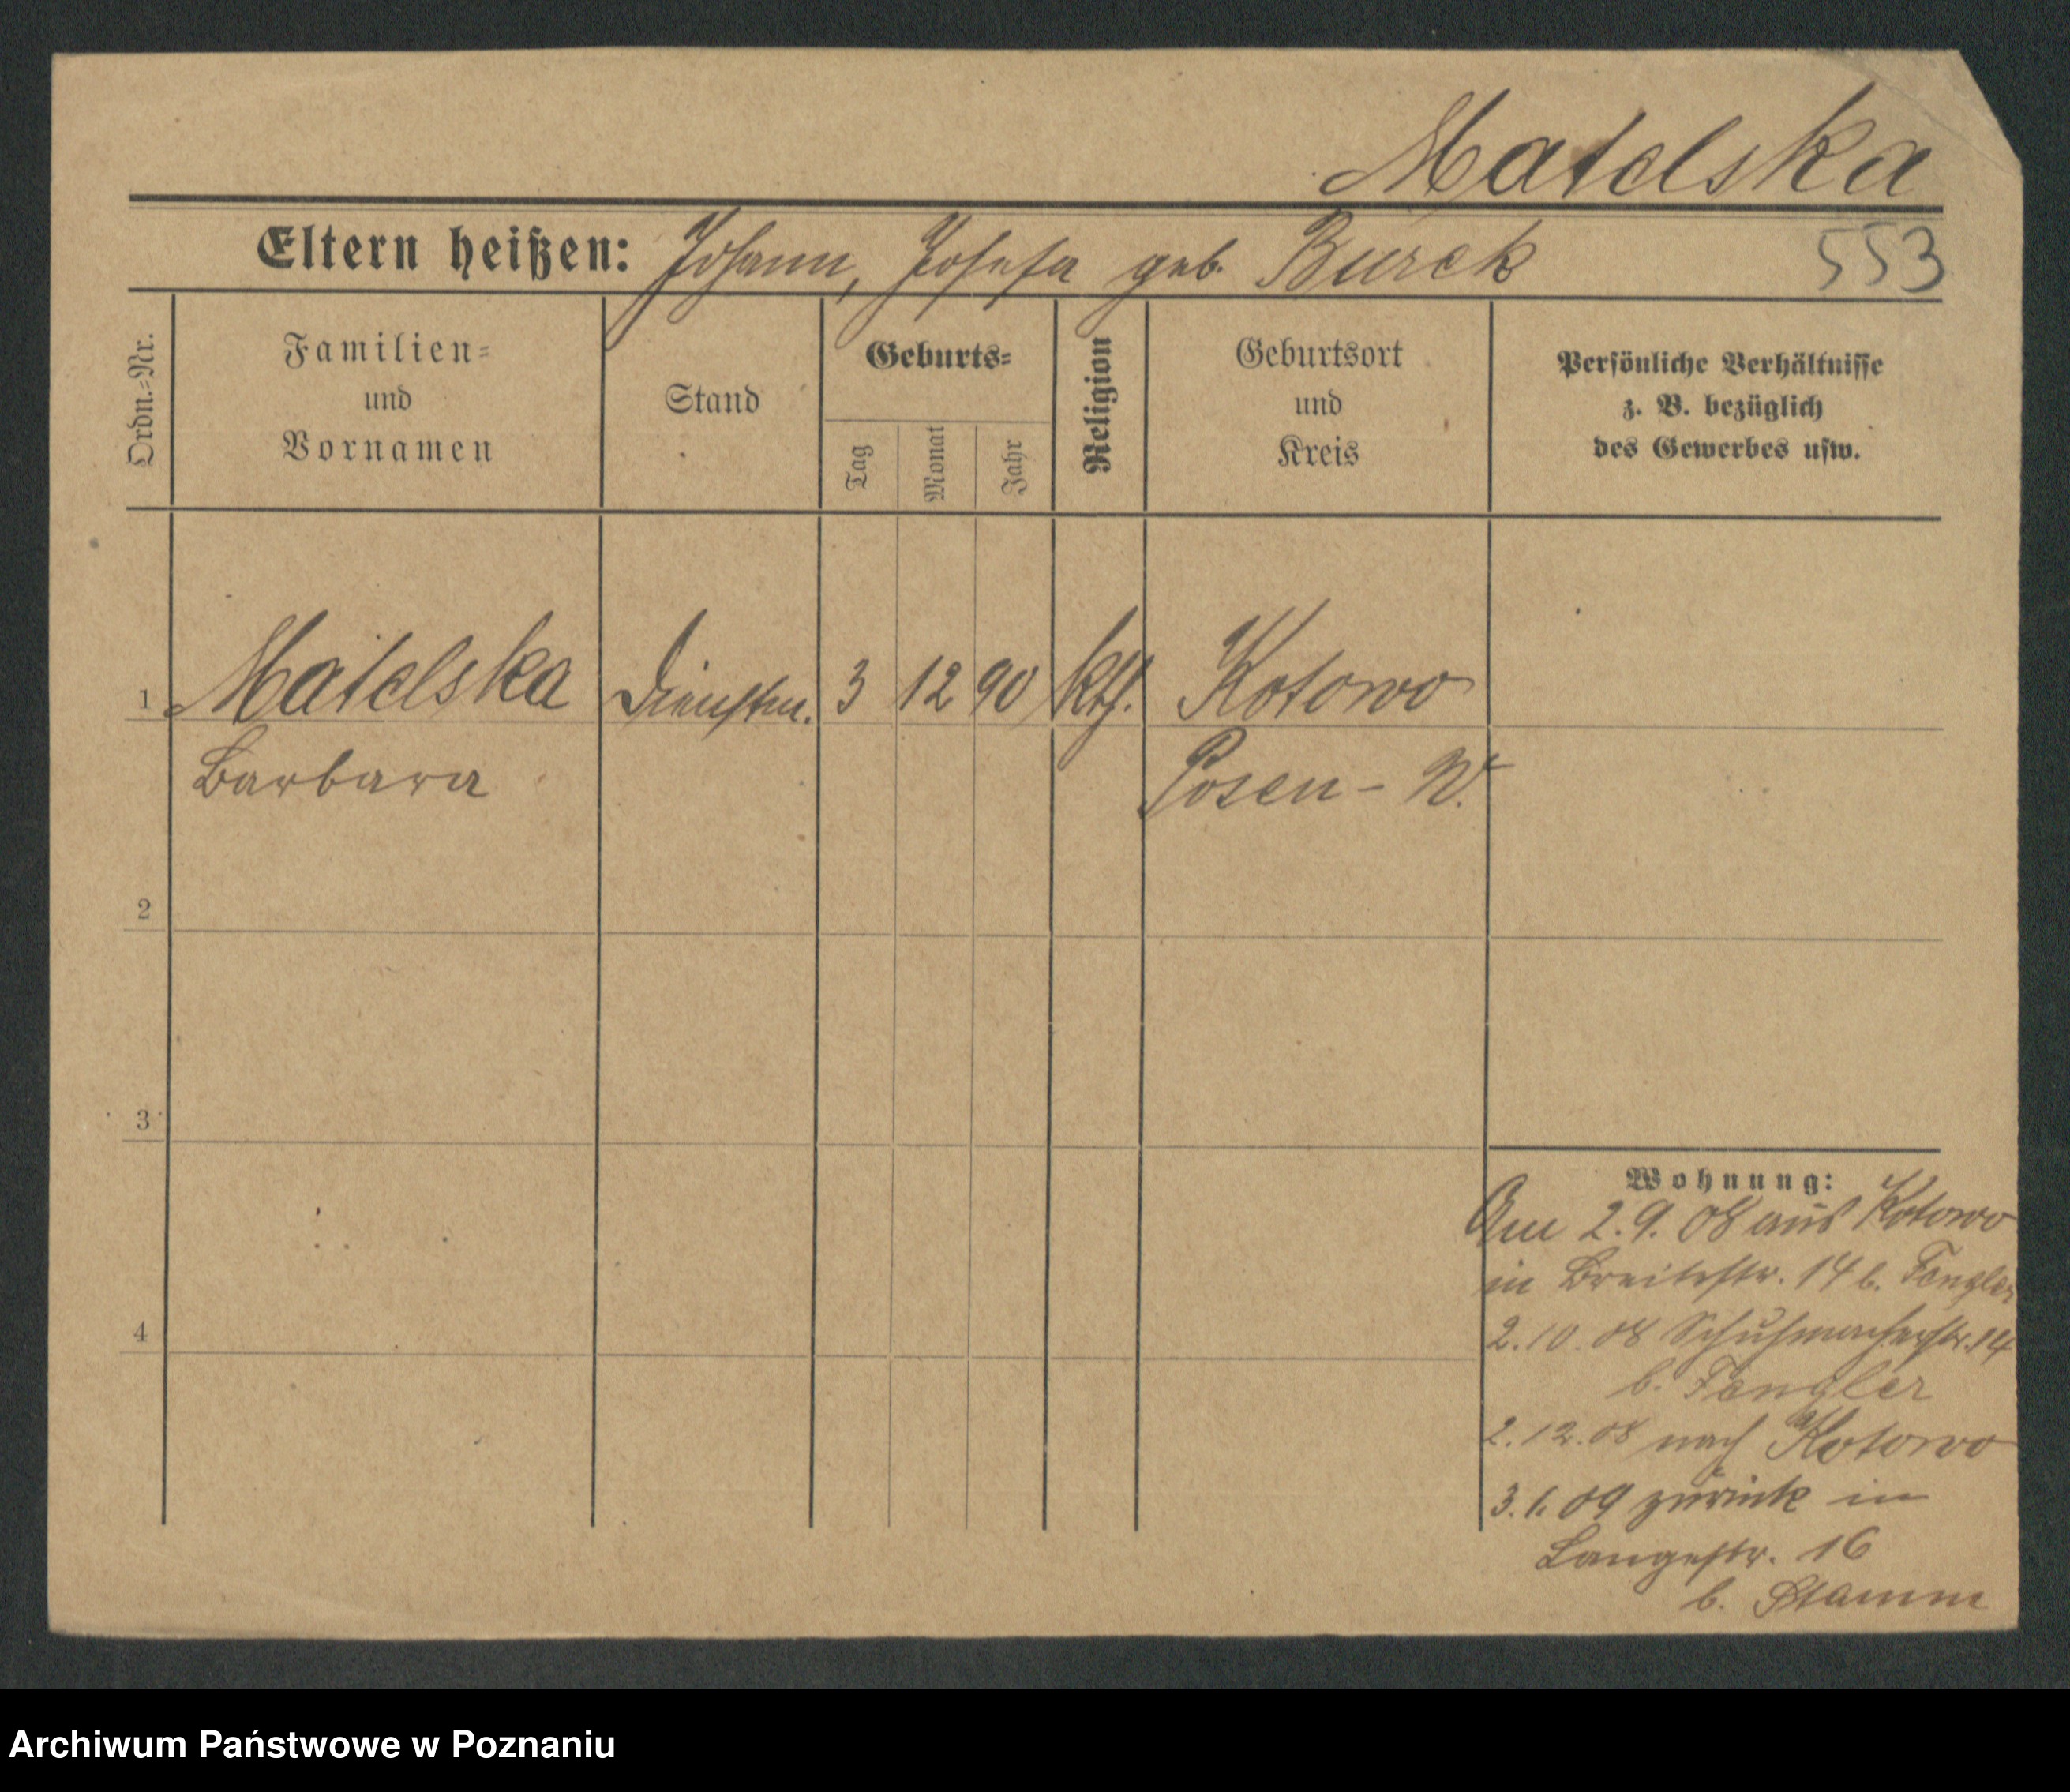 Matelska
Eltern heißen: Johann, Josefa geb. Burek
553
Ordn.-Nr.
Familien-
und
Vornamen
Stand
Geburts-
Tag
Monat
Jahr
Religion
Geburtsort
und
Kreis
Persönliche Verhältnisse
z. B. bezüglich
des Gewerbes usw.
1 Matelska Dienstm. 3 12 90 kth. Kotowo
Barbara Posen-W.
2
3
4
Wohnung:
Am 2.9.08 aus Kotowo
in Breitestr. 14 b. Fengler
2.10.08 Schuhmacherstr. 14
b. Fengler
2.12.08 nach Kotowo
3.1.09 zurück in
Langestr. 16
b. Stamm
Archiwum Państwowe w Poznaniu